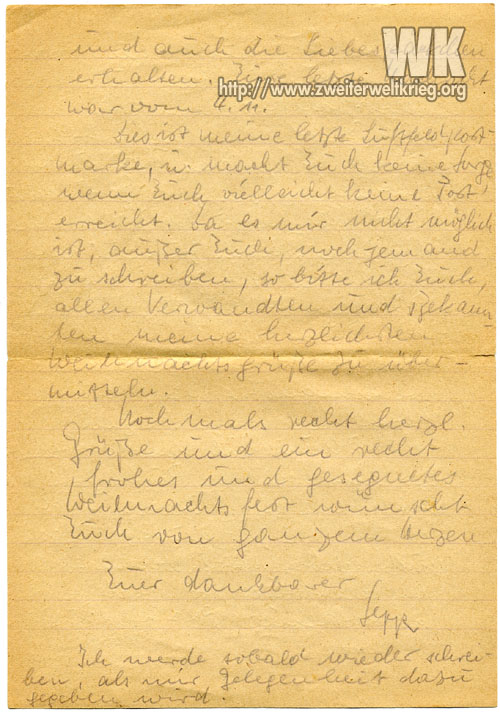 WK
http://www.zweiterweltkrieg.org
und auch die
erhalten.
war vom 4. 11.
Dies ist meine letzte Luftfeldpost-
marke, u. macht Euch keine Sorge,
wenn Euch vielleicht keine Post
erreicht. Da es mir nicht möglich
ist, außer Euch, noch jemand
zu schreiben, so bitte ich Euch,
allen Verwandten und Bekann-
ten meine herzlichsten
Weihnachtsgrüße zu über-
mitteln.
Nochmals recht herzl.
Grüße und ein recht
frohes und gesegnetes
Weihnachtsfest wünscht
Euch von ganzem Herzen
Euer dankbarer
Sepp
Ich werde sobald wieder schrei-
ben, als mir Gelegenheit dazu
gegeben wird.